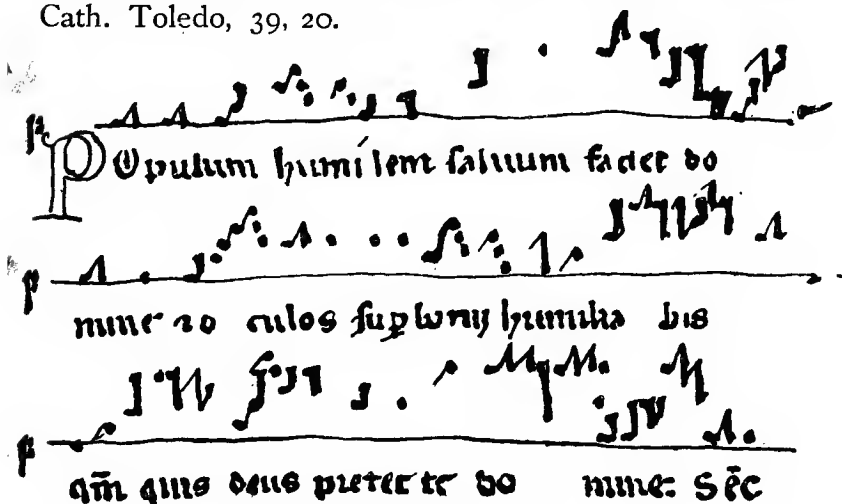 Cath. Toledo, 39, 20.
Populum humilem saluum faciet do
mine ⁊ o culos sup̱ humilia bis
qm̄ quis deus preter te do mine: Sēc